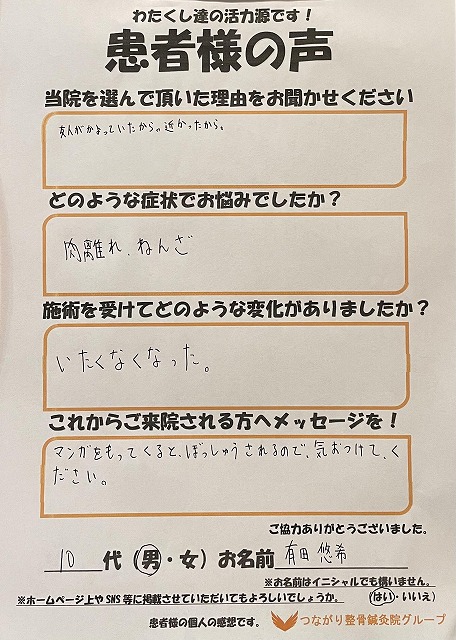 わたくし達の活力源です!
患者様の声
当院を選んで頂いた理由をお聞かせください
友人がかよっていたから。近かったから。
どのような症状でお悩みでしたか?
肉離れ、ねんざ
施術を受けてどのような変化がありましたか?
いたくなくなった。
これからご来院される方へメッセージを!
マンガをもってくると、ぼっしゅうされるので、気おつけて、く
ださい。
ご協力ありがとうございました。
10 代(男・女)お名前 有田 悠希
※お名前はイニシャルでも構いません。
※ホームページ上やSNS等に掲載させていただいてもよろしいでしょうか。 (はい・いいえ)
患者様の個人の感想です。 つながり整骨鍼灸院グループ